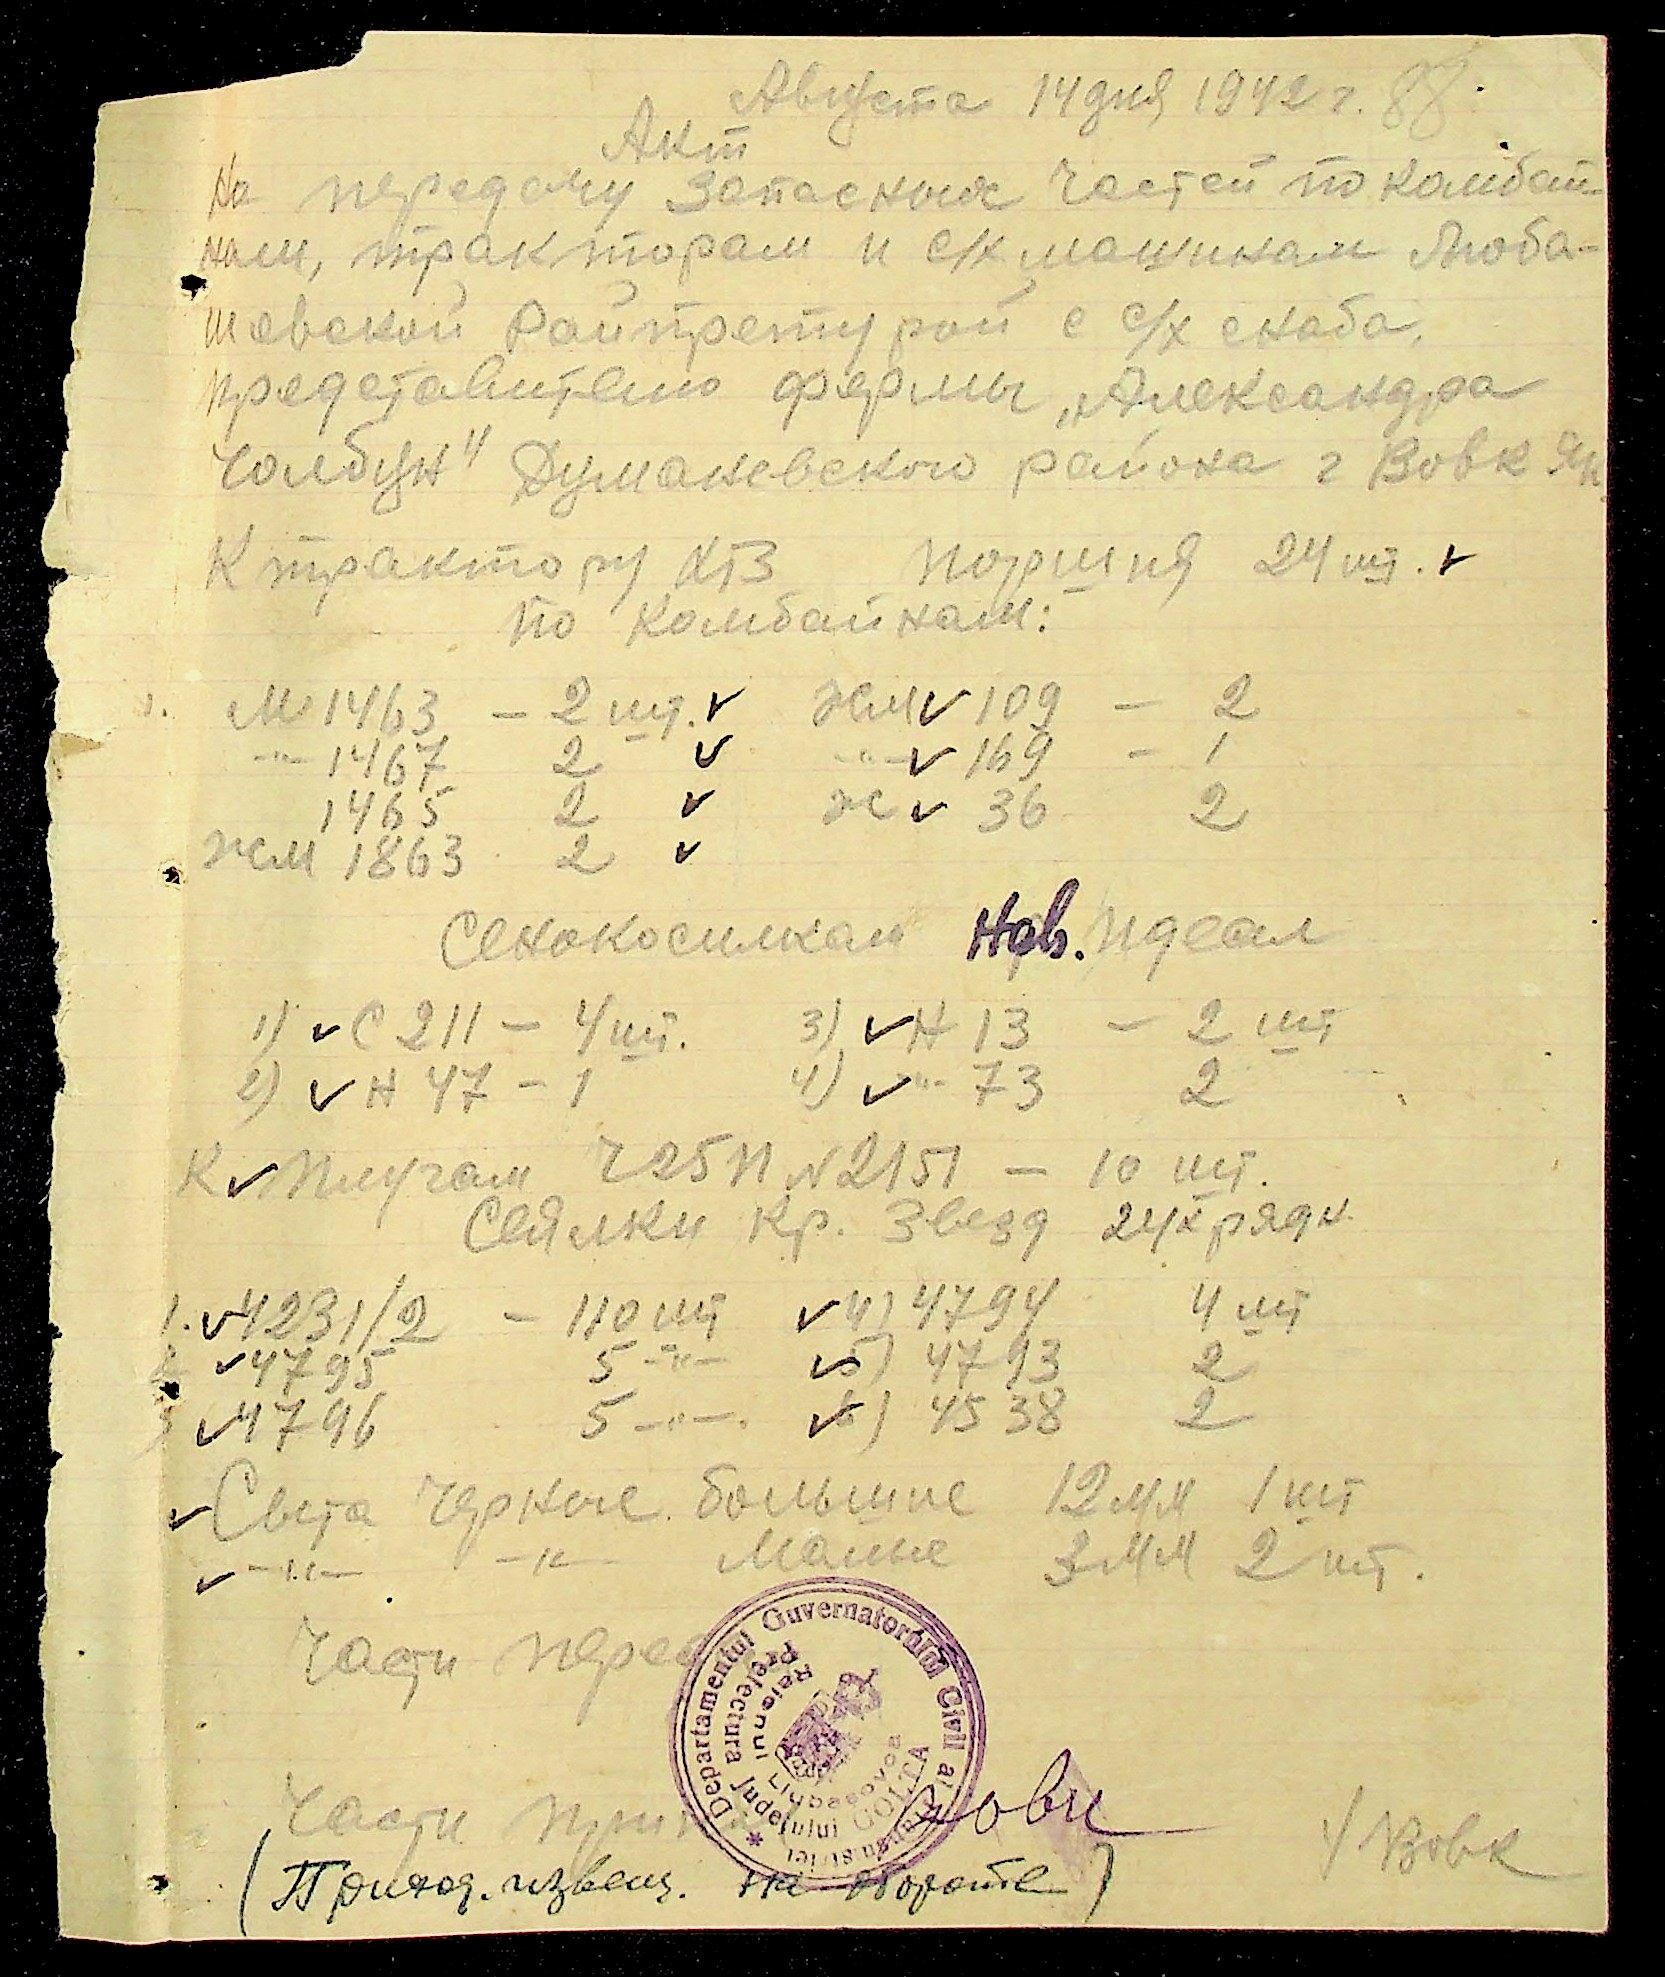 Августа 14 дня 1942 г. 88
Акт
На передачу запасных частей по комбай-
нам, тракторам и с/х машинам Люба-
шевской Райпретурой с с/х снаба,
представителю фермы "Александра
Чолбун" Думаневского района г Вовк Як.
К трактору ХТЗ поршня 24 шт.
По комбайнам:
1. М 1463 – 2 шт. ЖМ 109 – 2
-"- 1467 2 -"- 169 – 1
1465 2 Ж 36 2
ЖМ 1863 2
Сенокосилкам Нов. Идеал
1) С 211 – 4 шт. 3) Н 13 – 2 шт
2) Н 47 – 1 4) -"- 73 2
К плугам Ч25П N2151 – 10 шт.
Сеялки Кр. Звезд 24х рядн
1. 4231/2 – 110 шт 4) 4794 4 шт
2 4795 5 -"- 5) 4793 2
3 4796 5 -"-. 6) 4538 2
Света черные большие 12 мм 1 шт
-"- -"- малые 3 мм 2 шт.
Части перед
Части принял / Вовк
(Приход. извещ. на обороте)
Departamentul Guvernatorului Civil al Transnistriei
Prefectura Judeţului GOLTA
Raionul Liubaşovca